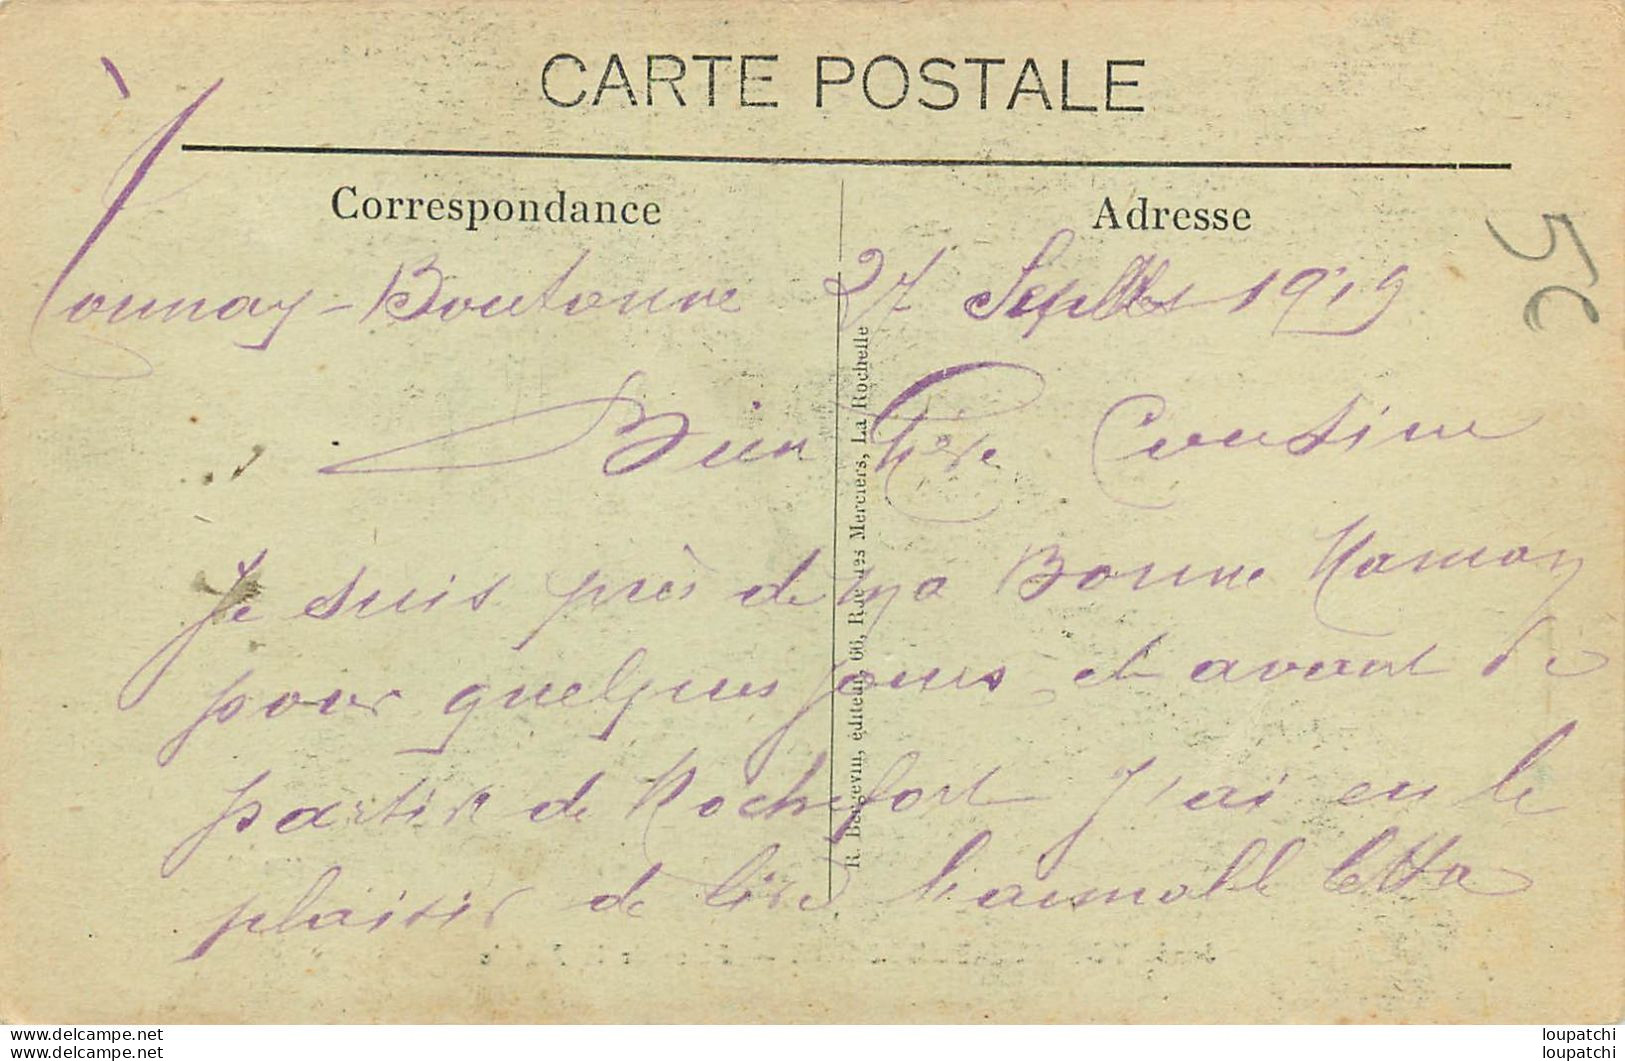 CARTE POSTALE
Correspondance
Adresse
5e
Tonnay-Boutonne 27 Septbre 1919
Bien Chère Cousine
Je suis près de ma Bonne Maman
pour quelques jours et avant de
partir de Rochefort J'ai eu le
plaisir de lire l'aimable lettre
R. Bergevin, éditeur, 66, Rue des Merciers, La Rochelle
www.delcampe.net
www.delcampe.net
loupatchi
loupatchi